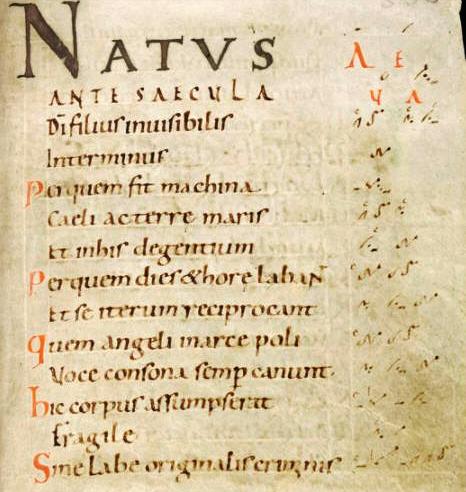 NATVS
ANTE SAECULA
Di filius inuisibilis
Interminus
Per quem fit machina
Caeli ac terre maris
Et in his degentium
Per quem dies & hore labant
Et se iterum reciprocant
quem angeli in arce poli
Voce consona semp canunt
hic corpus assumpserat
fragile
Sine labe originalis criminis